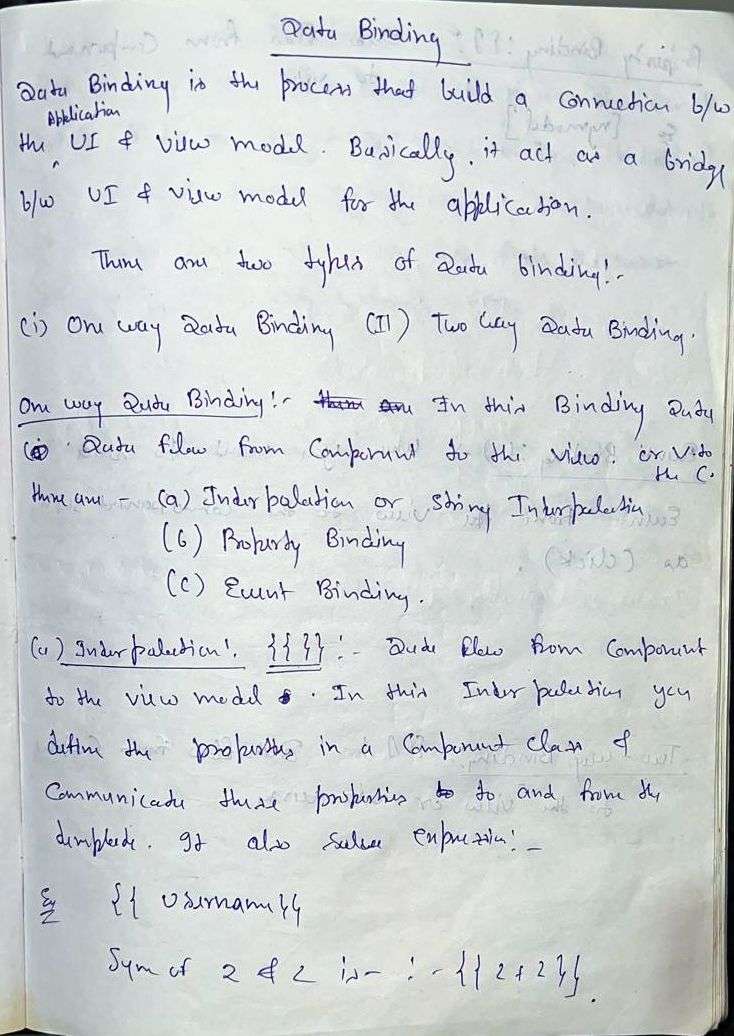 Data Binding
Data Binding is the process that build a connection b/w
Application
the UI & view model. Basically, it act as a bridge
b/w UI & view model for the application.
There are two types of Data binding:-
(i) One way Data Binding (II) Two way Data Binding.
One way Data Binding:- there are In this Binding Data
Data flow from Component to the view. or V. to
the C.
there are - (a) Interpolation or String Interpolation
(b) Property Binding
(c) Event Binding.
(a) Interpolation:- {{ }} :- Data flow from Component
to the view model. In this Interpolation you
define the properties in a Component class &
Communicate these properties to to and from the
template. It also solve expression:-
Eg {{ username}}
Sum of 2 & 2 is - :- {{ 2+2 }}.